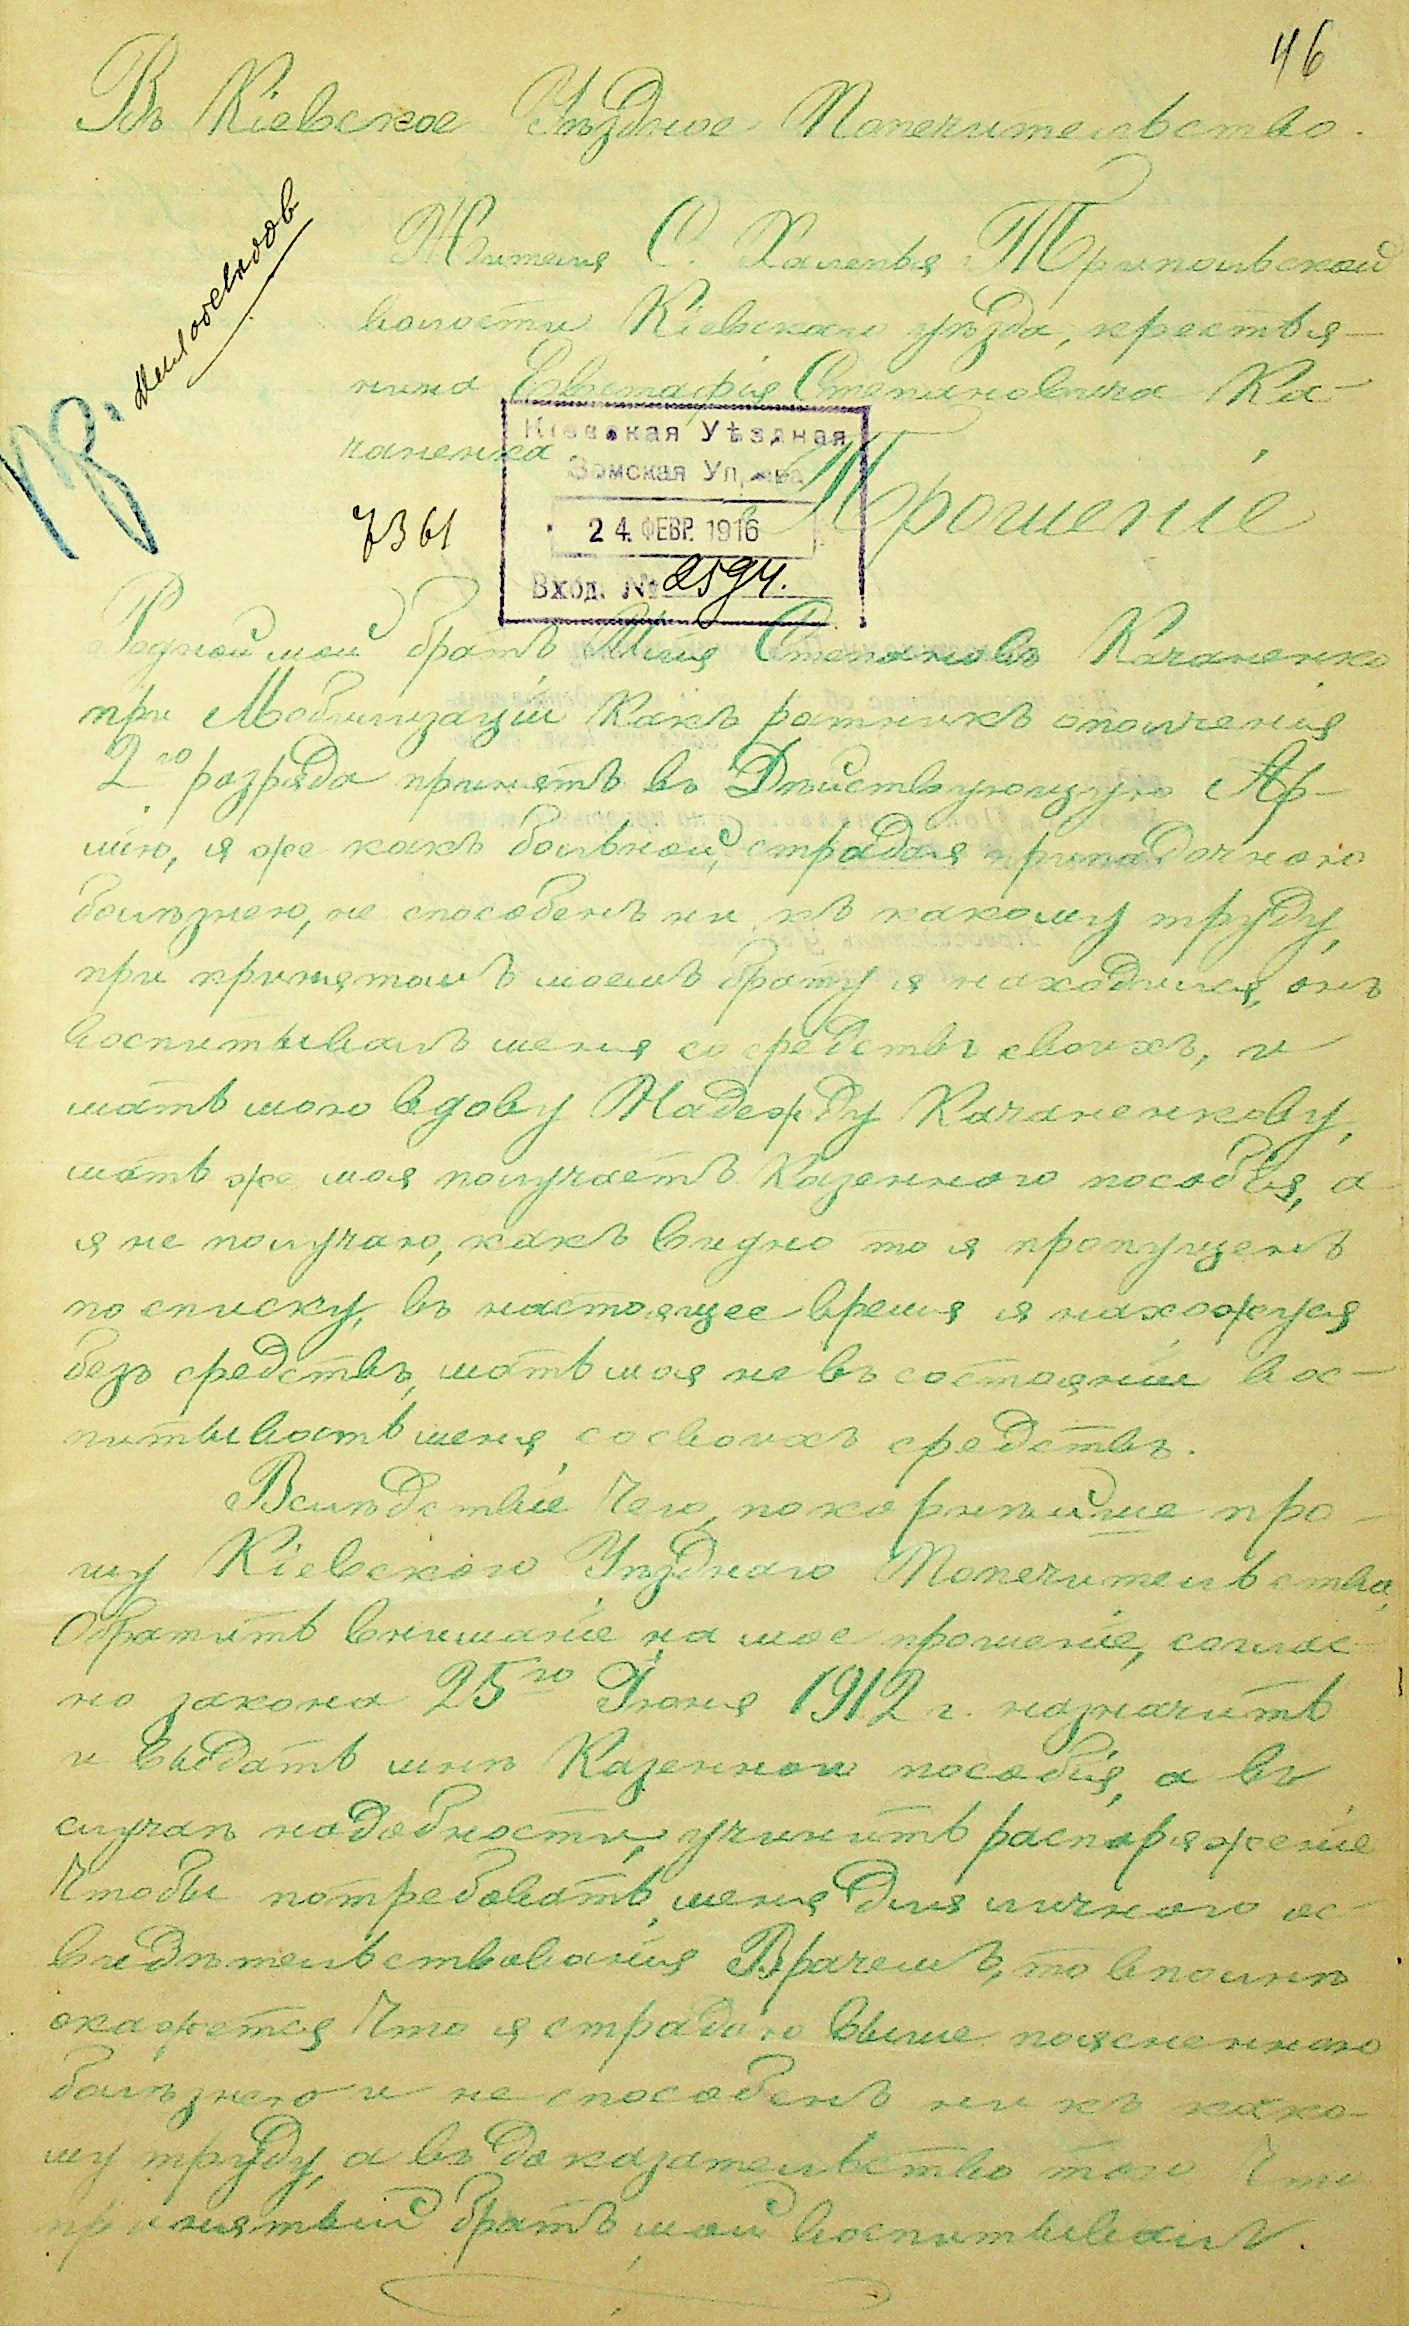 46
Въ Кіевское Уѣздное Попечительство.
Жителя С. Халепья Трипольской
волости Кіевскаго уѣзда, крестья-
нина Евстафія Степановича Ка-
чаненка
Прошеніе
Кіевская Уѣздная
Земская Управа
24. ФЕВР. 1916
Вход. № 2594.
7361
Родной мой братъ Илія Степановъ Качаненко
при Мобилизаціи Какъ ратникъ ополченія
2го разряда принятъ въ Дѣйствующую Ар-
мію, я же какъ больной, страдая припадочною
болѣзнею, не способенъ ни къ какому труду,
при принятомъ моемъ брату я находился, онъ
воспитывалъ меня со средствъ своихъ, и
мать мою вдову Надежду Качаненкову,
мать же моя получаетъ Казенного пособія, а
я не получаю, какъ видно то я пропущенъ
по списку, въ настоящее время я нахожуся
безъ средствъ, мать моя не въ состояніи вос-
питывать меня со своихъ средствъ.
Вслѣдствіе Чего, покорнѣйше про-
шу Кіевского Уѣзднаго Попечительства,
Обратить вниманіе на мое прошеніе, соглас-
но закона 25го Іюня 1912 г. назначить
и выдать мнѣ Казенного пособія, а въ
случаѣ надобности, учинить распоряженіе
Чтобы потребовать меня для личного ос-
видѣтельствованія Врачемъ, то вполнѣ
окажется Что я страдаю выше поясненною
болѣзнею и не способенъ ни къ како-
му труду, а въ доказательство того Что
принятый братъ мой воспитывалъ.